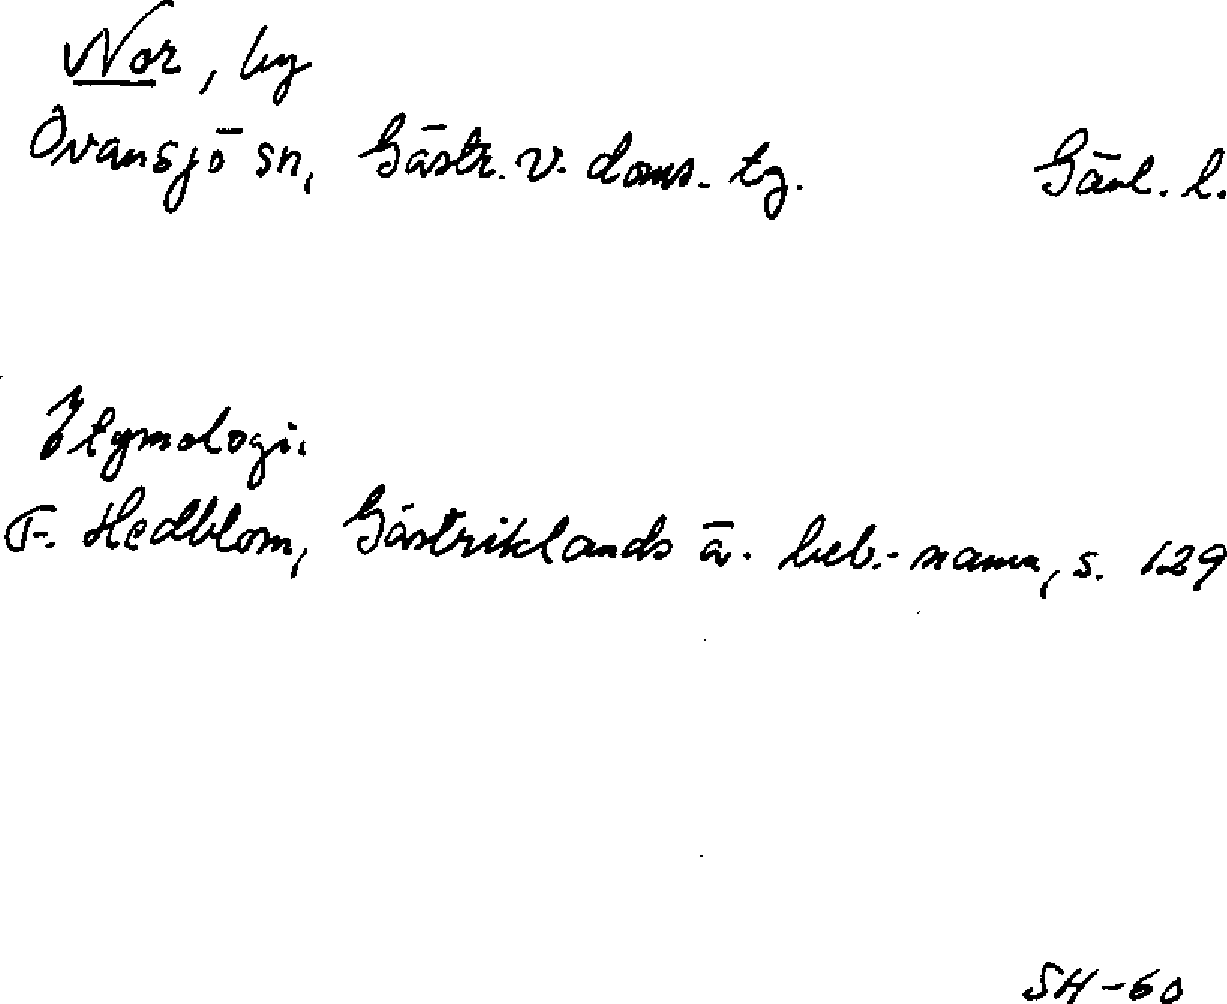 Nor, by
Ovansjö sn, Gästr. v. doms. tg. Gävl. l.
Etymologi.
F. Hedblom, Gästriklands ä. beb.-namn, s. 129
SH-60